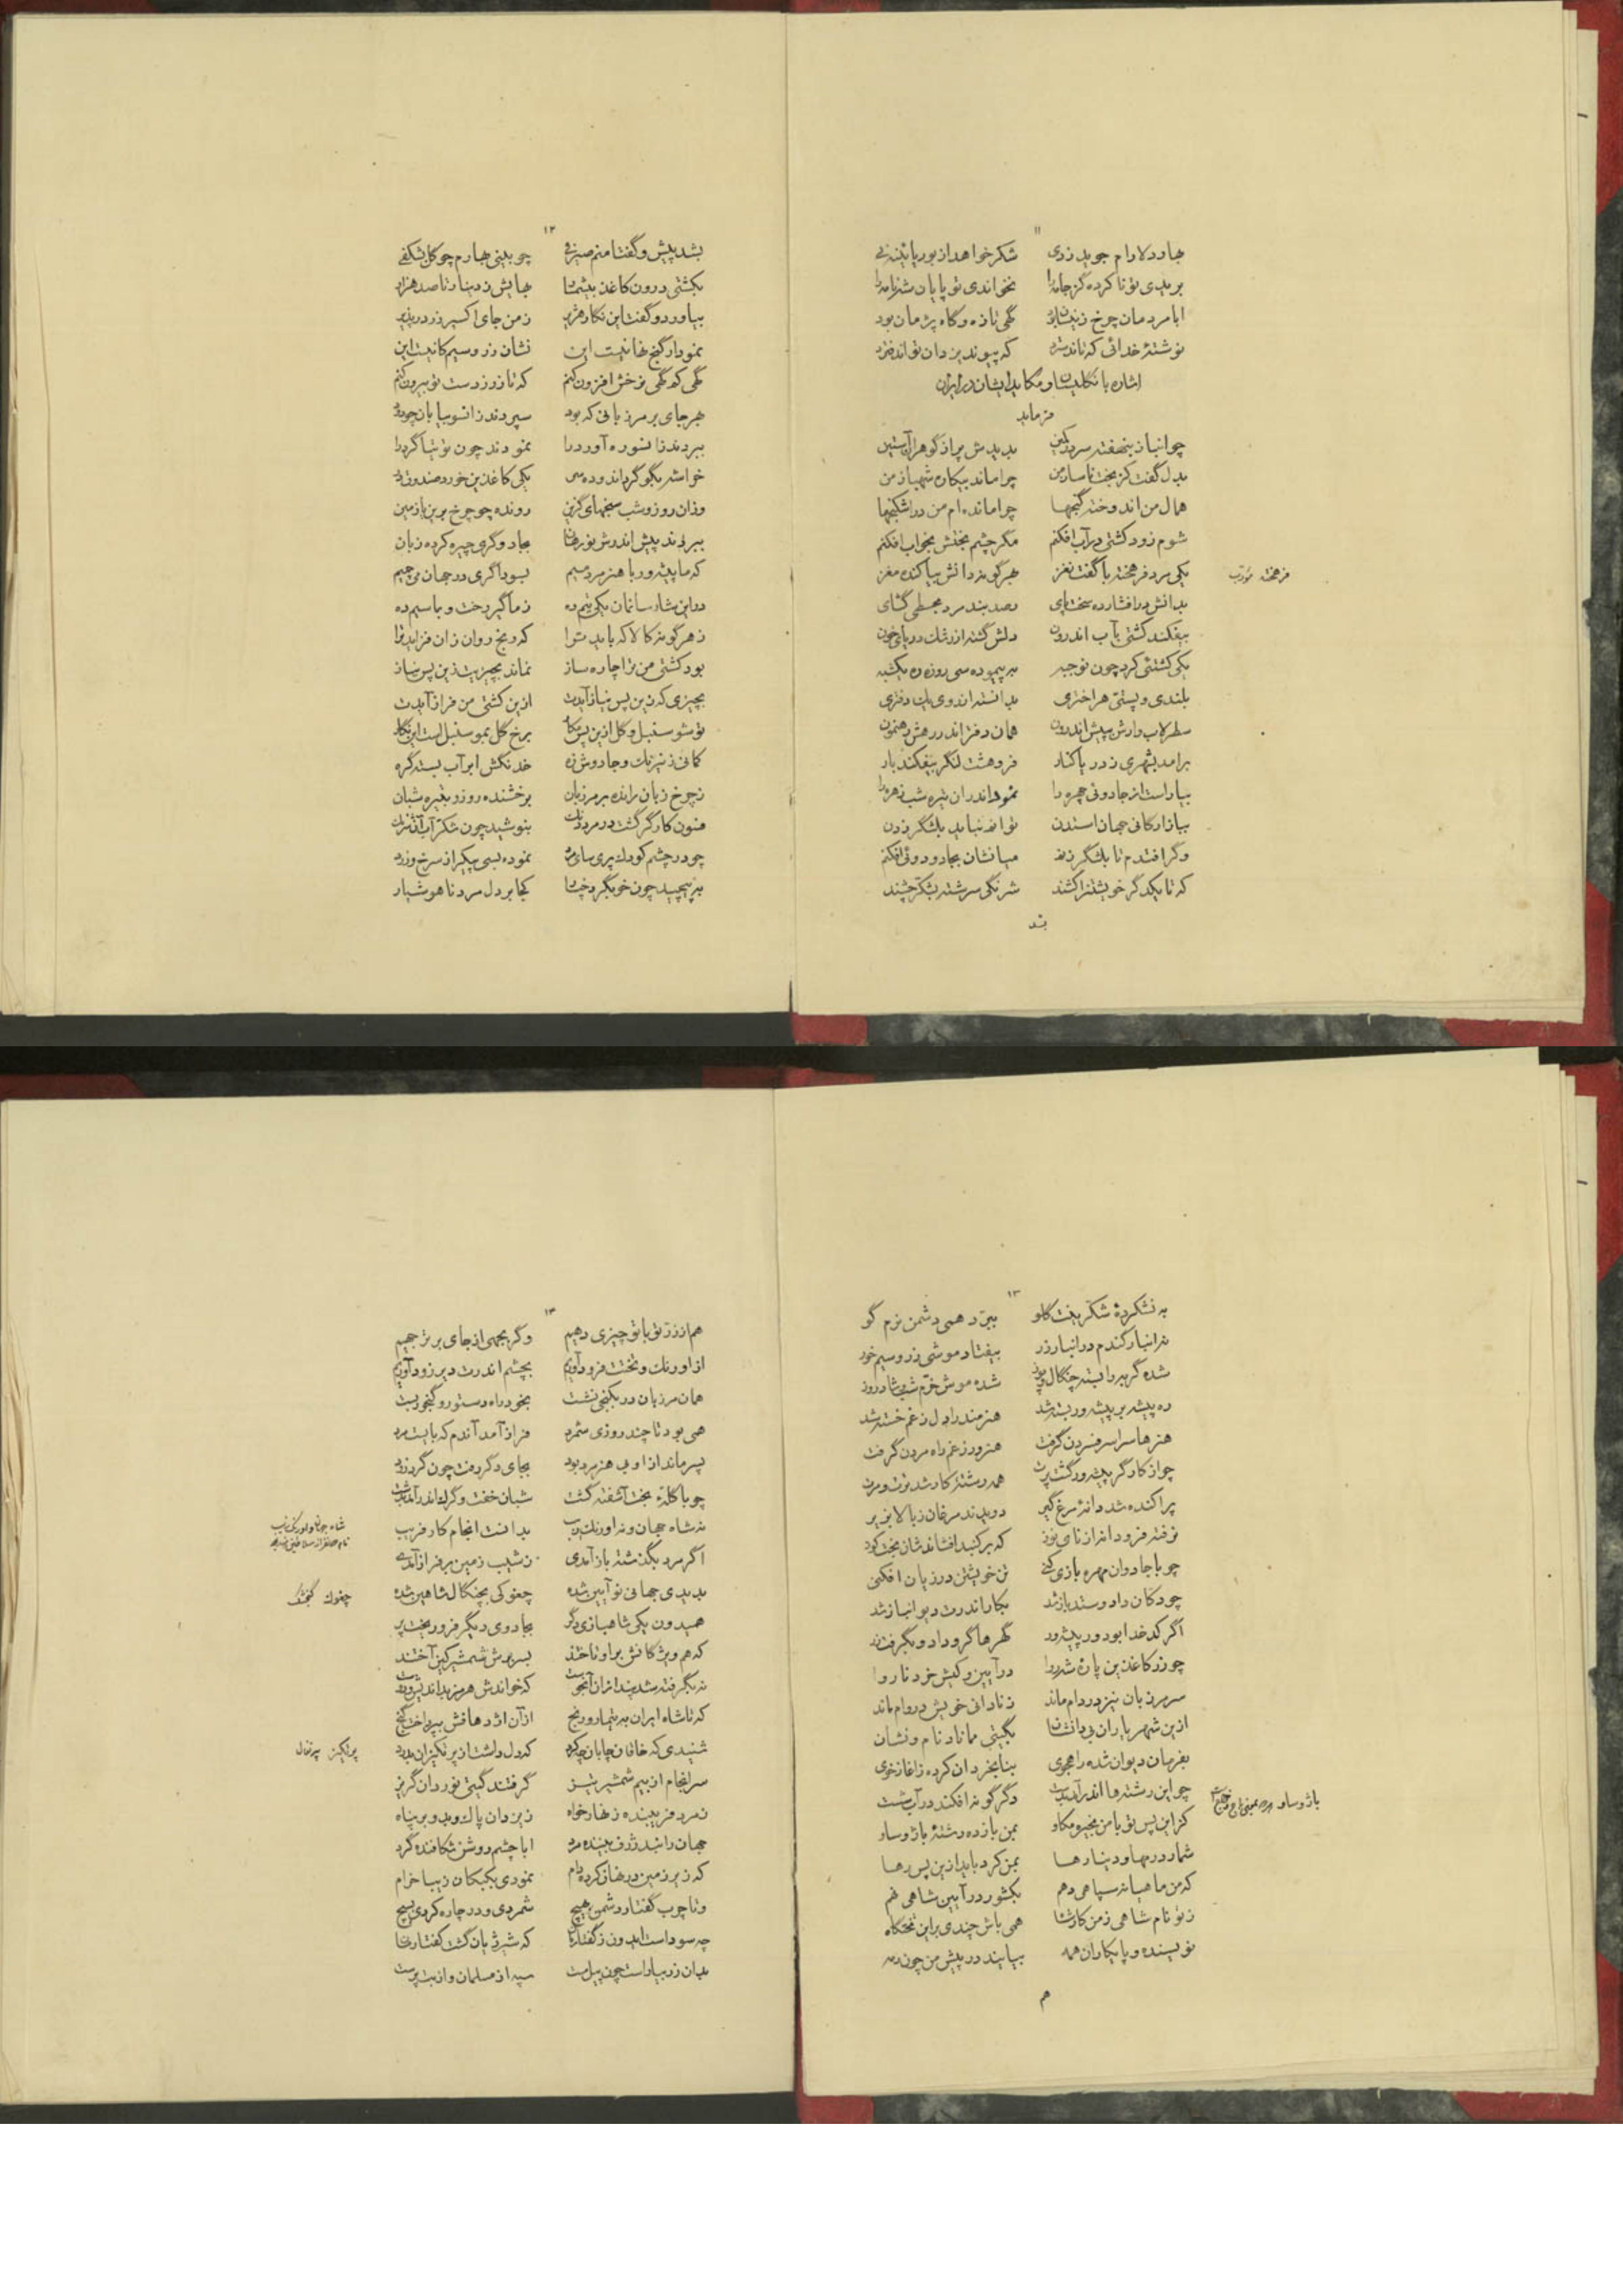 ۱۱
بهار دلارام جوید ز دی شکر خواهد از بوریا پیشه نی
بریدی تو نا کرده گز جامه را نخواندی تو پایان شهنامه را
ابا مردمان چرخ زینسان بود گهی تازه و گاه پژمان بود
نوشتهٔ خدائی که تاند سترد که پیوند یزدان تواند فشرد
اشاره بانگلیسان و مکاید ایشان در ایران
فرماید
چو انباز بنهفته سر در کمین بدیدش پر از گوهران آستین
بدل گفت کز بخت ناساز من چرا ماند بیکاره شهباز من
همال من اندوخته گنجها چرا مانده ام من در اشکنجها
شوم زود کشتی در آب افکنم مگر چشم بختش بخواب افکنم
یکی مرد فرهخته پاگفت نغز بهر گونه دانش بیاکنده مغز
فرهخته مؤدب
بدانش در افشارده سخت پای بصد بند مرد مجسطی گشای
بیفکند کشتی بآب اندرون دلش گشته از رشک دریای خون
یکی کشتئی کرد چون نو جبیر بپیموده سی روزه ره یکشبه
بلندی و پستی هر اختری بدانسته اندوی یک دفتری
سطرلاب دارش به پیش اندرون همان دفتر اندر رهش رهنمون
برآمد بشهری ز دریا کنار فروهشت لنگر بیفکند بار
بیاراست از جادوئی چهره را نمود اندران تیره شب زهره را
ببازارگانی جهان استدن توانم نباید بلشکر زدن
وگر افتدم تا بلشکر زنم میانشان بجادو دوئی افکنم
که تا یکدگر خویشتن را کشند شرنگی سرشته بشکّر چشند
بشد
۱۲
بشد پیش و گفتا منم صیرفی چو بینی بهارم چو گل بشکفی
بکشتی درون کاغذ بیشمار بهایش ز دینار تا صد هزار
بیاورد و گفت این نگار هژیر ز من جای اکسیر زر در پذیر
نمودار گنج نهانیست این نشان زر و سیم کانیست این
گهی که گهی نرخش افزون کنم که تا زر ز دست تو بیرون کنم
بهر جای بر مرزبانی که بود سپردند زانسو بیابان چو دود
ببردند زانسو ره آورد را نمودند چون توتیا گرد را
خوانش بگوگرد اندوده سی یکی کاغذین خورد صندوق
وزان روز و شب سنجهای گزین رونده چو چرخ برین بر زمین
ببردند پیش اندرش نورهان بجادوگری چیره کرده زبان
که ما پیشه ور با هنر مردمیم بسوداگری در جهان می چمیم
در این شارسانمان یکی تیم ده ز ما گیر رخت و بما سیم ده
ز هر گونه کالا که باید ترا که رنج روان زان فزاید ترا
بود کشتی من ترا چاره ساز نماند بچیزیت زین پس نیاز
بچیزی که زین پس نیاز آیدت ازین کشتی من فراز آیدت
تو شو سنبل و گل ازین پس مکار برخ گل بمو سنبل است این نگار
کمانی ز نیرنگ و جادوش زه خدنگش ابر آب بسته گره
ز چرخ زبان رانده بر مرزبان برخشنده روز و بتیره شبان
فسون کارگر گشت در مرد بنوشید چون شکّر آب
چو در چشم کودک پری سای نموده بسی پیکر از سرخ و زرد
بپیچید چون کجا بر دل مرد ناهوشیار
۱۳
به نشکردهٔ شکّرینت گلو ببرّد همی دشمن نرم گو
نه انبار گندم در انبار زر بیفتاد موشی زر و سیم خور
شده گربه را بسته چنگال و پوز شده موش خرّم شب و شاد روز
ره پیشه بر پیشه ور بسته شد هنرمند را دل ز غم خسته شد
هنرها سراسر فسردن گرفت هنرور ز غم راه مردن گرفت
چو از کارگر پیشه ور گشت همه رشتهٔ کار شد ترت و مرت
پراکنده شد دانهٔ مرغ گیر دویدند مرغان ز بالا بزیر
نرفته فرو دانه از نای توز که بر گنبد افشاندشان بخت کوز
چو با جادوان مهره بازی کنی تن خویشتن در زیان افکنی
چو دکان داد و ستد باز شد بکار اندرت دیو انباز شد
اگر کدخدا بود ور پیشه ور گهرها گرو داد و بگرفت زر
چو زر کاغذین پاره شد روا در آیین و کیش خرد ناروا
سر مرزبان نیز در دام ماند ز نادانی خویش در وام ماند
ازین شهریاران بی دانشان بگیتی مماناد نام و نشان
بفرمان دیوان شده راهجوی بنابخردان کرده زاغاز خوی
چو این رشته ها اندر آمد بدست دگر گونه افکند در آب شست
کزین پس تو با من مچیر و مکاو بمن باز ده رشتهٔ باژ و ساو
باژ و ساو بمعنی باج و خراج است
شمار درمها و دینارها بمن کرد باید ازین پس رها
که من ماهیانه سپاهی دهم بکشور در آیین شاهی نهم
ز تو نام شاهی ز من کار شاه همی باش چندی بر این تختگاه
نویسنده و پایکاران همه بیایند در پیش من چون رمه
هم
۱۴
هم از زرّ تو با تو چیزی دهیم وگر بجهی از جای بر تر جهیم
از اورنگ و تختت فرود آوریم بچشم اندرت دیر زود آوریم
همان مرزبان در بکنجی نشست بخود راه دستور و گنجور بست
همی بود تا چند روزی شمرد فراز آمد آندم که بایست مرد
پسر ماند از او بی هنر مرد بود بجای دگر رفت چون گرد زود
چو با گله بخت آشفته گشت شبان خفت و گرگ اندر آمد بدشت
نه شاه جهان و نه اورنگ زیب بدانست انجام کار فریب
شاه جهان و اورنگ زیب نام دو نفر از سلاطین هند
اگر مرد بگذشته باز آمدی ز شیب زمین بر فراز آمدی
بدیدی جهانی نو آیین شده چغوکی بچنگال شاهین شده
چغوک گنجشک
همیدون یکی شاهبازی دگر بجادوی دیگر فرو ریخت پر
که هم ویژگانش بر او تاختند بسر برش شمشیر کین آختند
نه بگرفته شد پند ازان که خواندش هرمز
که تا شاه ایران به تیمار و رنج از آن اژدهافش بپرداخت گنج
شنیدی که خاقان چاپان چه کرد که دل داشت از پرتگیزان بدرد
پرتگیز پرتقال
سرانجام از بیم شمشیر تیز گرفتند گیتی نوردان گریز
ز مرد فریبنده زنهار خواه ز یزدان پاک و بدو بر پناه
جهان راند ژرف بیننده مرد ابا چشم روشن شکافنده گرد
که زیر زمین در نهان کرده دام نمودی بکبکان زیبا خرام
و تا چرب گفتار دشمن بهیچ شمردی و در چاره کردی بسیچ
چه سود است ایدون ز گفتار ما که شیر ژیان گشت کفتار ما
بدان زر بیاراست چون پیل مست سپه از مسلمان و از بت پرست